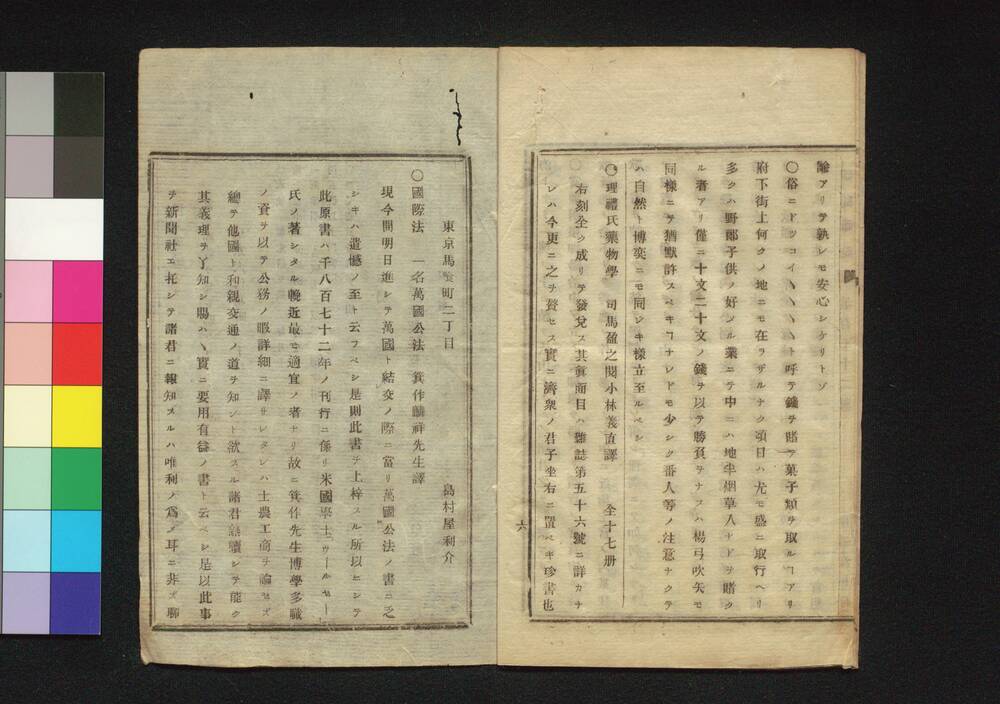 諭アリテ孰レモ安心シケリトゾ
〇俗ニドツコイ〱〱ト呼テ錢ヲ賭テ菓子類ヲ取ルヿアリ
府下街上何クノ地ニモ在ラザルナク頃日ハ尤モ盛ニ取行ヘリ
多クハ野鄙子供ノ好ンル業ニテ中ニハ地半烟草入ナドヲ賭ク
ル者アリ僅ニ十文二十文ノ錢ヲ以テ勝負ヲナスハ楊弓吹矢モ
同様ニテ猶默許スベキヿナレドモ少シク番人等ノ注意ナクテ
ハ自然ト博奕ニモ同シキ樣立至ルベシ
〇理禮氏藥物學 司馬盈之閲小林義直譯 全十七册
右刻全ク成リテ發兌ス其眞面目ハ雜誌第五十六號ニ詳カナ
レハ今更ニ之ヲ贅セス實ニ濟衆ノ君子坐右ニ置ベキ珍書也
六
東京馬喰町二丁目
島村屋利介
〇國際法 一名萬國公法 箕作麟祥先生譯
現今開明日進シテ萬國ト結交ノ際ニ當リ萬國公法ノ書ニ乏
シキハ遺憾ノ至ト云フベシ是則此書ヲ上梓スル所以ニシテ
此原書ハ千八百七十二年ノ刊行ニ係リ米國學士ウールセー
氏ノ著シタル輓近最モ適宜ノ者ナリ故ニ箕作先生博學多職
ノ資ヲ以テ公務ノ暇詳細ニ譯サレタレハ士農工商ヲ論セズ
總テ他國ト和親交通ノ道ヲ知ント欲スル諸君熟讀シテ能ク
其義理ヲ了知シ賜ハヽ實ニ要用有益ノ書ト云ベシ是以此事
ヲ新聞社エ托シテ諸君ニ報知スルハ唯利ノ爲ノ耳ニ非ズ聊